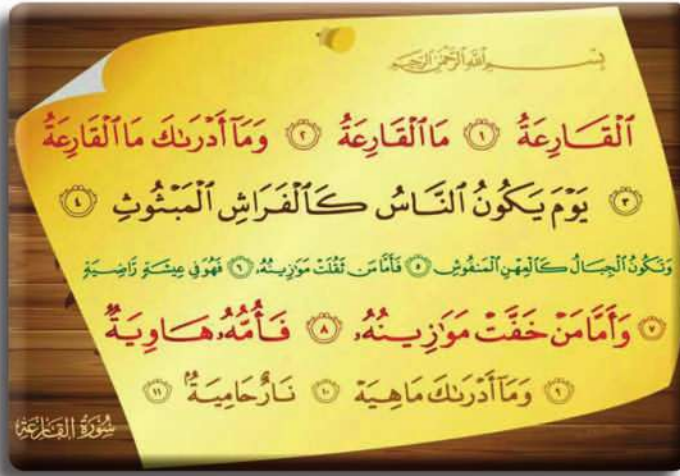 بِسْمِ ٱللَّهِ ٱلرَّحْمَٰنِ ٱلرَّحِيمِ
ٱلْقَارِعَةُ ١ مَا ٱلْقَارِعَةُ ٢ وَمَآ أَدْرَىٰكَ مَا ٱلْقَارِعَةُ
٣ يَوْمَ يَكُونُ ٱلنَّاسُ كَٱلْفَرَاشِ ٱلْمَبْثُوثِ ٤
وَتَكُونُ ٱلْجِبَالُ كَٱلْعِهْنِ ٱلْمَنفُوشِ ٥ فَأَمَّا مَن ثَقُلَتْ مَوَٰزِينُهُۥ ٦ فَهُوَ فِي عِيشَةٍ رَّاضِيَةٍ
٧ وَأَمَّا مَنْ خَفَّتْ مَوَٰزِينُهُۥ ٨ فَأُمُّهُۥ هَاوِيَةٌ
٩ وَمَآ أَدْرَىٰكَ مَا هِيَهْ ١٠ نَارٌ حَامِيَةٌ ١١
سُورَةُ القَارِعَةِ